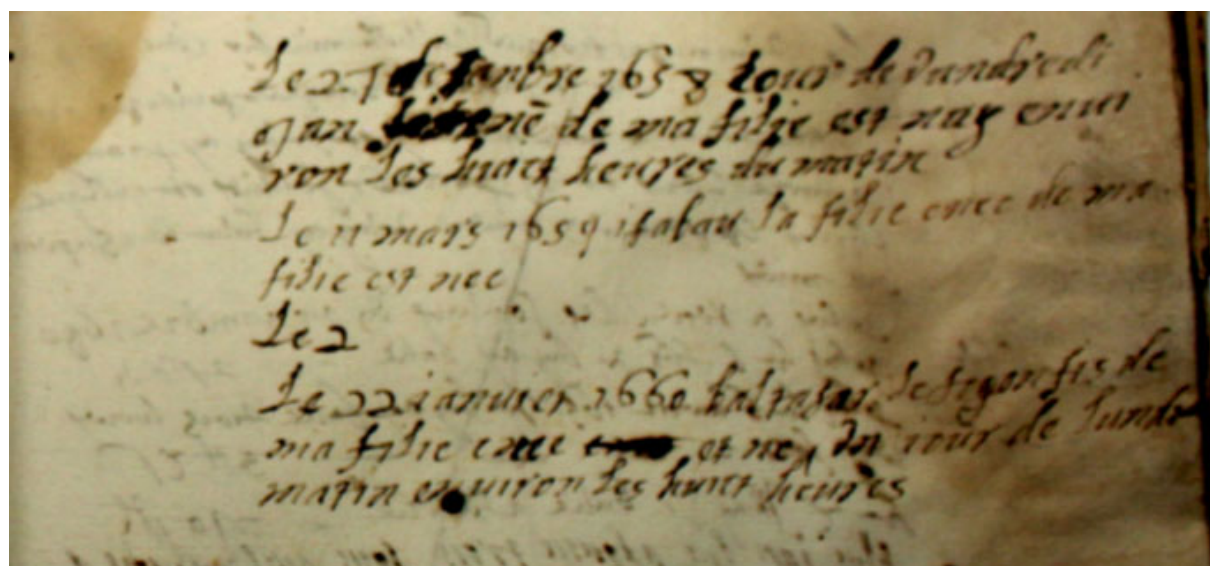 Le 27 desanbre 1658 iour de vandredi
jan de ma filie est nay enui
ron les huict heures du matin
Le 11 mars 1659 isabau la filie enee de ma
filie est nee
Le 2
Le 22 ianuier 1660 baltasar fis de
ma filie enee et ne, iour de lundi
matin enuiron les huict heures